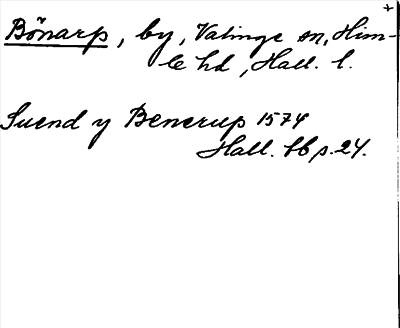 +
Bönarp, by, Valinge sn, Him-
le hd, Hall. l.
Suend y Benerup 1574
Hall. lb p. 24.